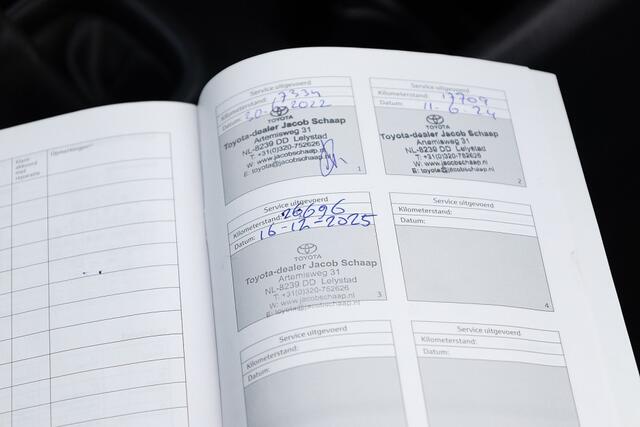 Klant
akkoord
met
reparatie
Opmerkingen
Service uitgevoerd
Kilometerstand: 7334
Datum: 2022
TOYOTA
Toyota-dealer Jacob Schaap
Artemisweg 31
NL-8239 DD Lelystad
T: +31(0)320-752626
W: www.jacobschaap.nl
E: toyota@jacobschaap.nl
1
Service uitgevoerd
Kilometerstand: 17709
Datum: 11-6-24
TOYOTA
Toyota-dealer Jacob Schaap
Artemisweg 31
NL-8239 DD Lelystad
T: +31(0)320-752626
W: www.jacobschaap.nl
E: toyota@jacobschaap.nl
2
Service uitgevoerd
Kilometerstand: 26696
Datum: 16-12-2025
TOYOTA
Toyota-dealer Jacob Schaap
Artemisweg 31
NL-8239 DD Lelystad
T: +31(0)320-752626
W: www.jacobschaap.nl
E: toyota@jacobschaap.nl
3
Service uitgevoerd
Kilometerstand:
Datum:
4
Service uitgevoerd
Kilometerstand:
Datum:
Service uitgevoerd
Kilometerstand:
Datum: